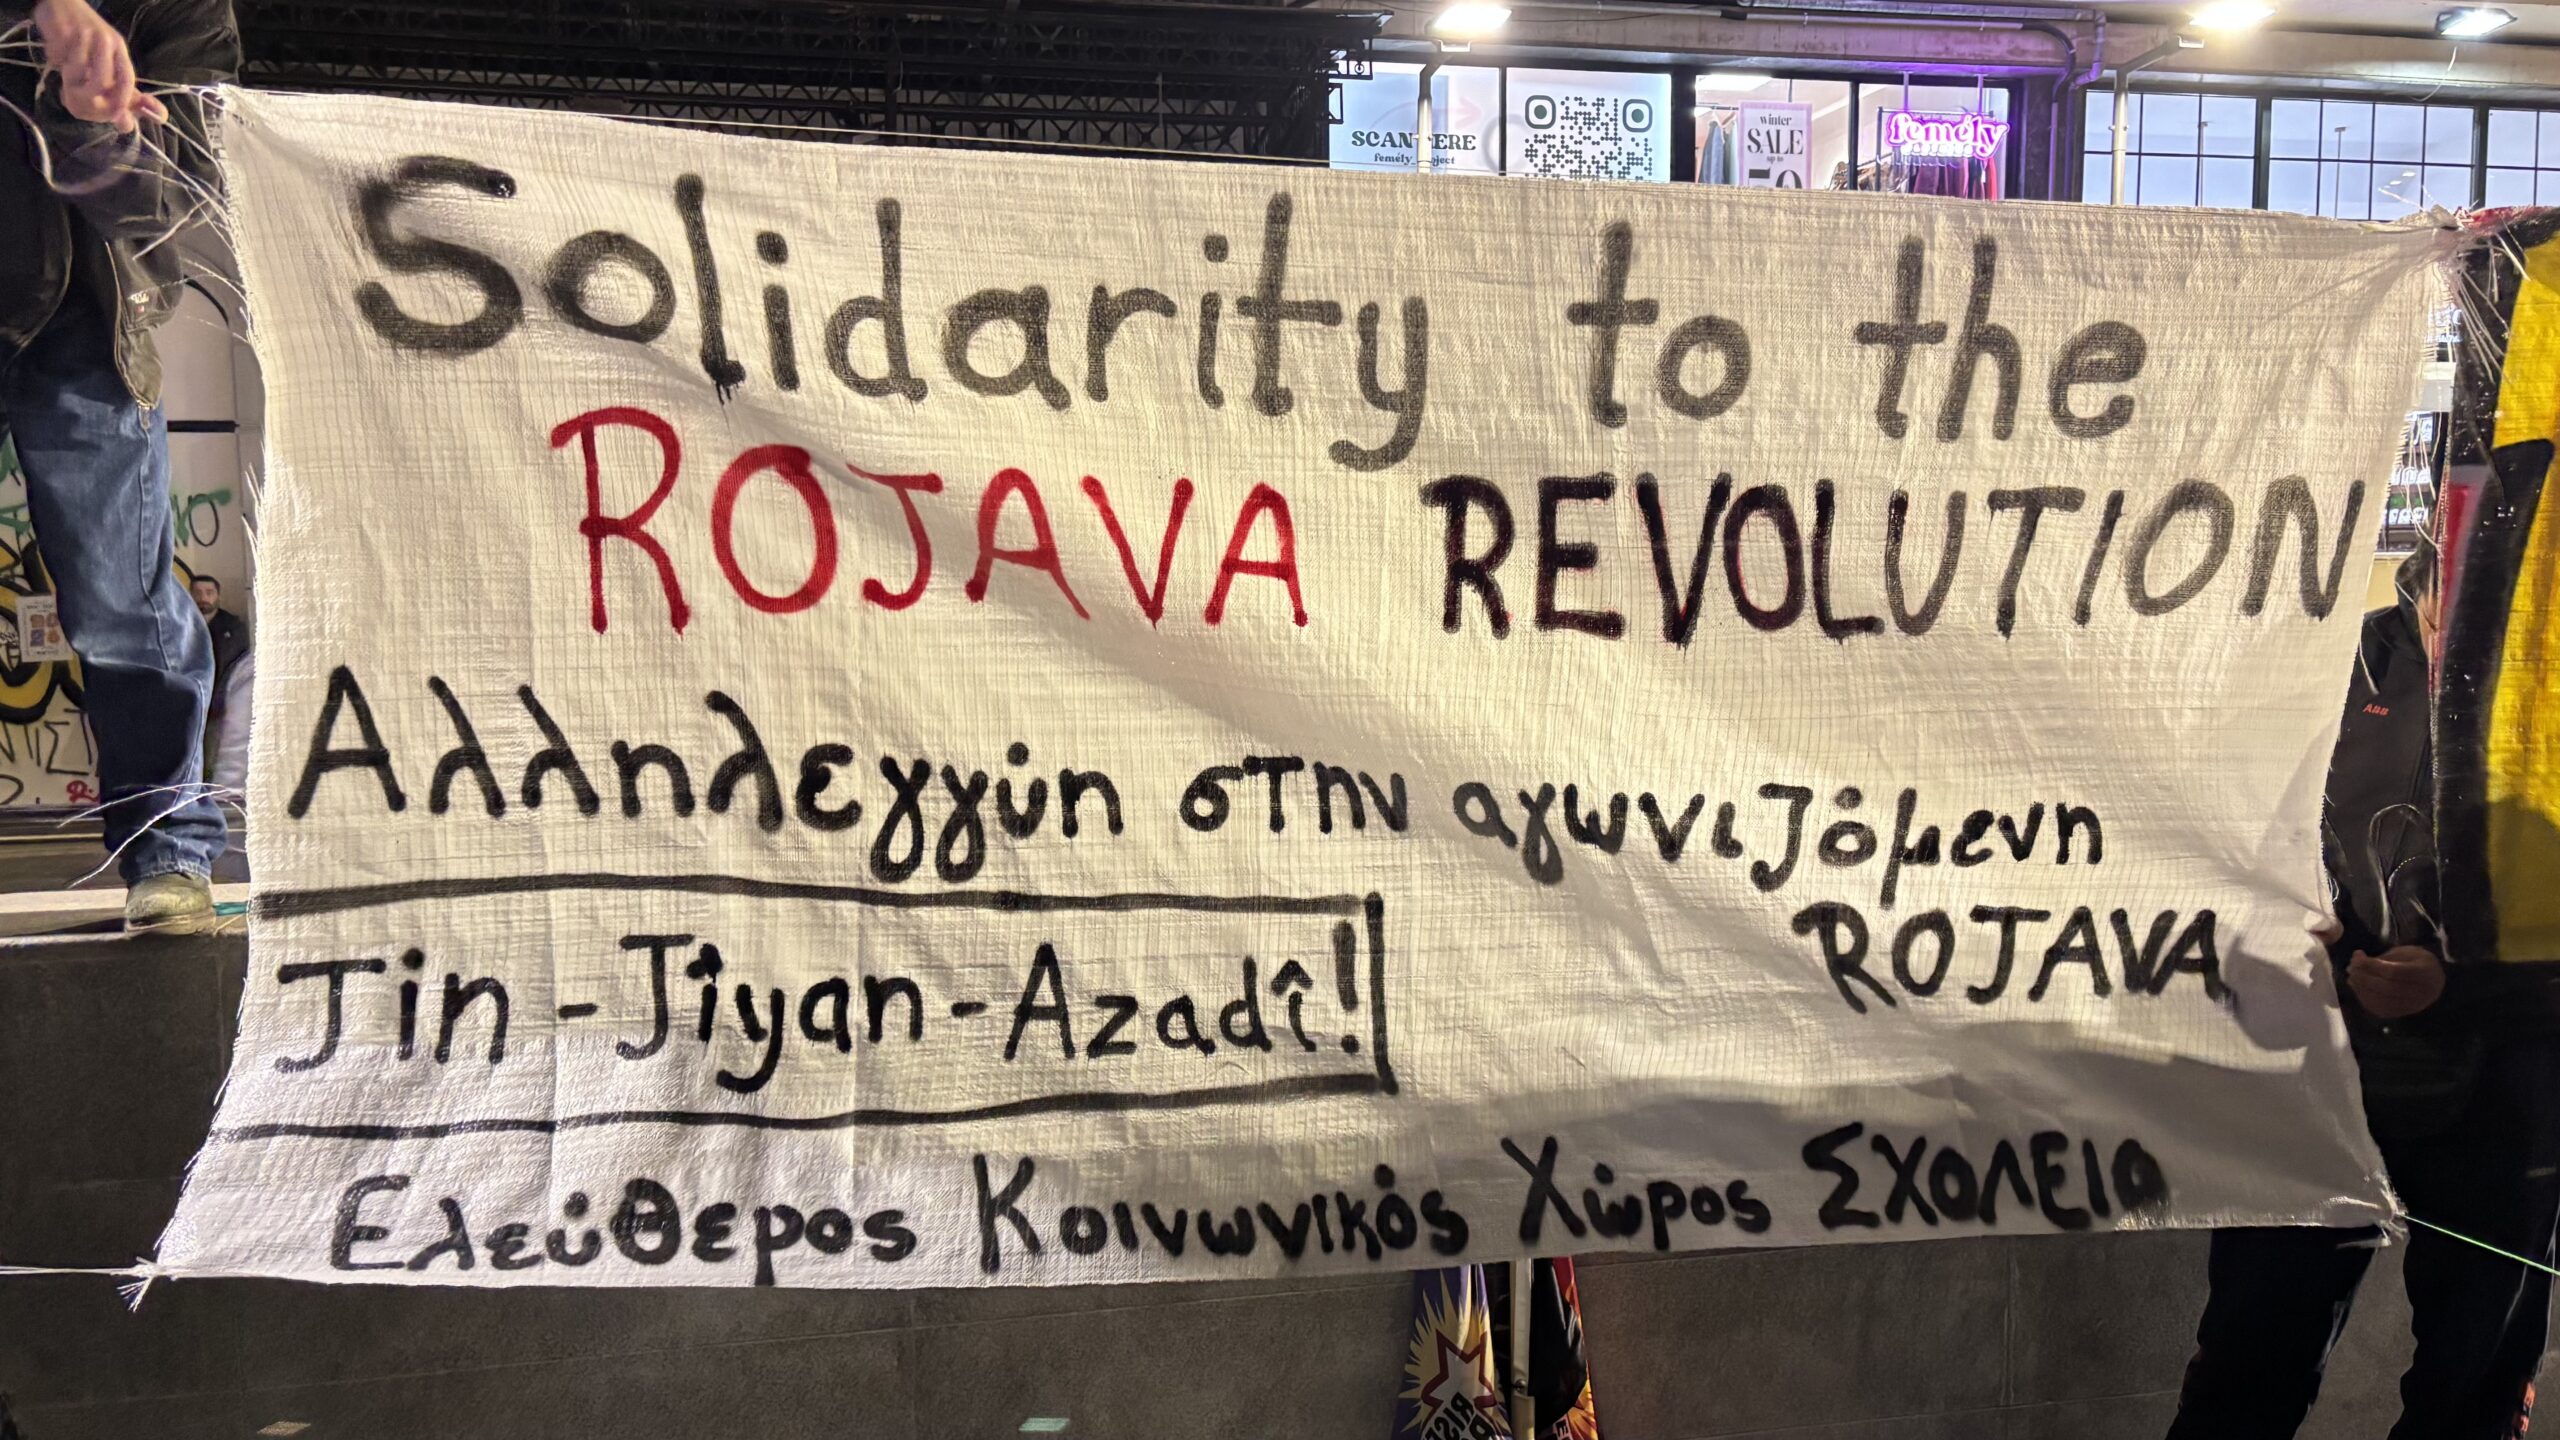 SCAN HERE
femély_project
winter
SALE
up to
50
femély
Solidarity to the
ROJAVA REVOLUTION
Αλληλεγγύη στην αγωνιζόμενη
ROJAVA
Jin - Jîyan - Azadî!
Ελεύθερος Κοινωνικός Χώρος ΣΧΟΛΕΙΟ
ABB